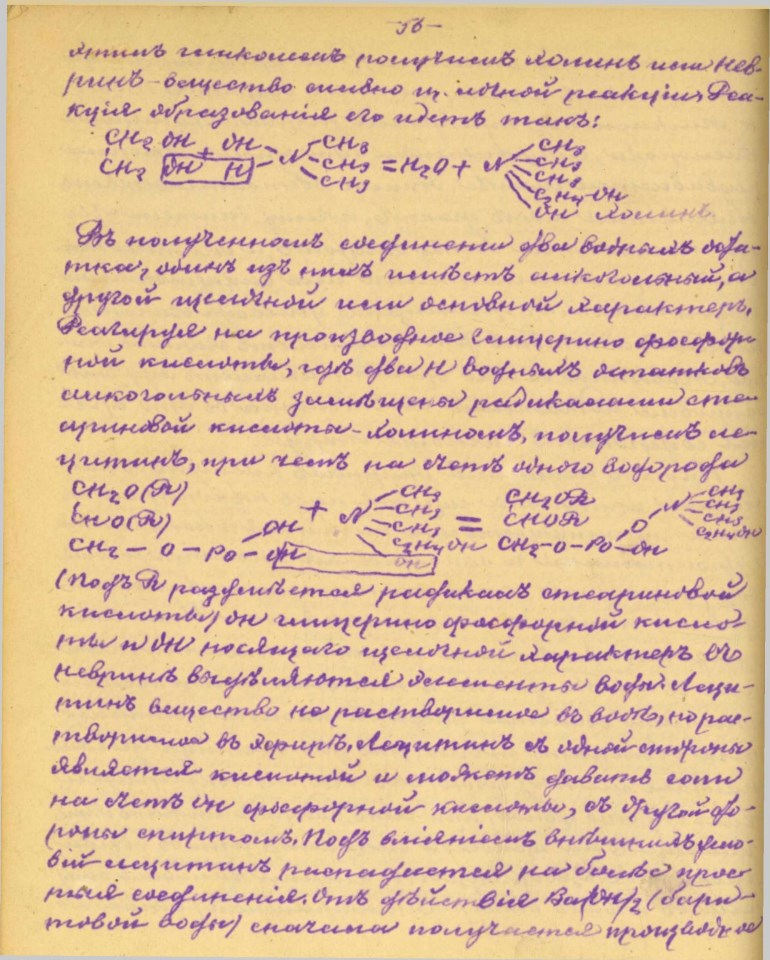 –56–
этимъ гликолемъ получимъ холинъ или нев-
ринъ – вещество сильно щелочной реакціи. Реа-
кція образованія его идетъ такъ:
CH2 OH + OH – N CH3 = H2O + N CH3
CH2 OH H CH3 CH3
CH3 CH3
C2H4 OH
OH холинъ.
Въ полученномъ соединеніи два водныхъ оста-
тка, одинъ изъ нихъ имѣетъ алкогольный, а
другой щелочной или основной характеръ.
Реагируя на производное глицерино фосфор-
ной кислоты, гдѣ два H водныхъ остатковъ
алкогольныхъ замѣщены радикалами сте-
ариновой кислоты – холиномъ, получимъ ле-
цитинъ, при чемъ на счетъ одного водорода
CH2O(R) + N CH3 = CH2OR N CH3
CHO(R) CH3 CHOR O CH3
CH2 – O – PO – OH CH3 CH2–O–PO–OH CH3
OH C2H4OH C2H4OH
OH
(подъ R разумѣется радикалъ стеариновой
кислоты) OH глицерино фосфорной кисло-
ты и OH носящаго щелочной характеръ въ
невринѣ выдѣляются элементы воды. Леци-
тинъ вещество не растворимое въ водѣ, но рас-
творимое въ эфирѣ. Лецитинъ съ одной стороны
является кислотой и можетъ давать соли
на счетъ OH фосфорной кислоты, съ другой сто-
роны спиртомъ. Подъ вліяніемъ внѣшнихъ усло-
вій лецитинъ распадается на болѣе прос-
тыя соединенія. Отъ дѣйствія Ba(OH)2 (бари-
товой воды) сначала получается производное